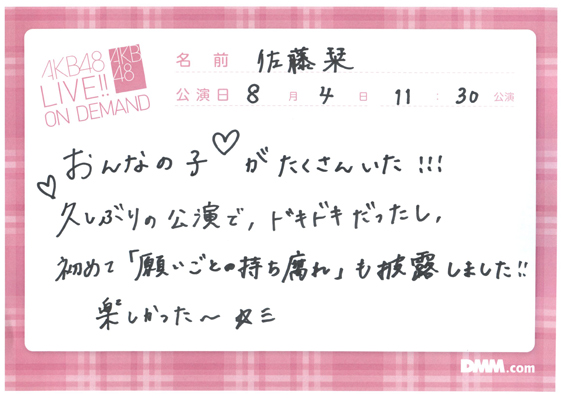 AKB48
LIVE!!
ON DEMAND
AKB
48
名前 佐藤栞
公演日 8月4日 11:30公演
おんなの子♡がたくさんいた!!!
♡久しぶりの公演で,ドキドキだったし,
初めて「願いごとの持ち腐れ」も披露しました!!
楽しかった〜☆彡
DMM.com